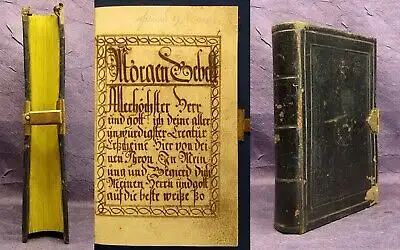 Morgen Gebett
Allerhöchster Herr
und gott ich deine aller
unwürdigster Creatur
Erscheine Hier von dei
nen Thron In Mein
ung und Begierd dich
Meinen Herrn und gott
auf die beste weiße zo